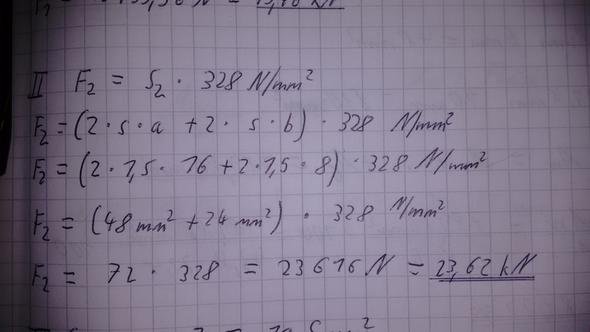 II F₂ = S₂ · 328 N/mm²
F₂ = (2 · s · a + 2 · s · b) · 328 N/mm²
F₂ = (2 · 1,5 · 16 + 2 · 1,5 · 8) · 328 N/mm²
F₂ = (48 mm² + 24 mm²) · 328 N/mm²
F₂ = 72 · 328 = 23616 N = 23,62 kN